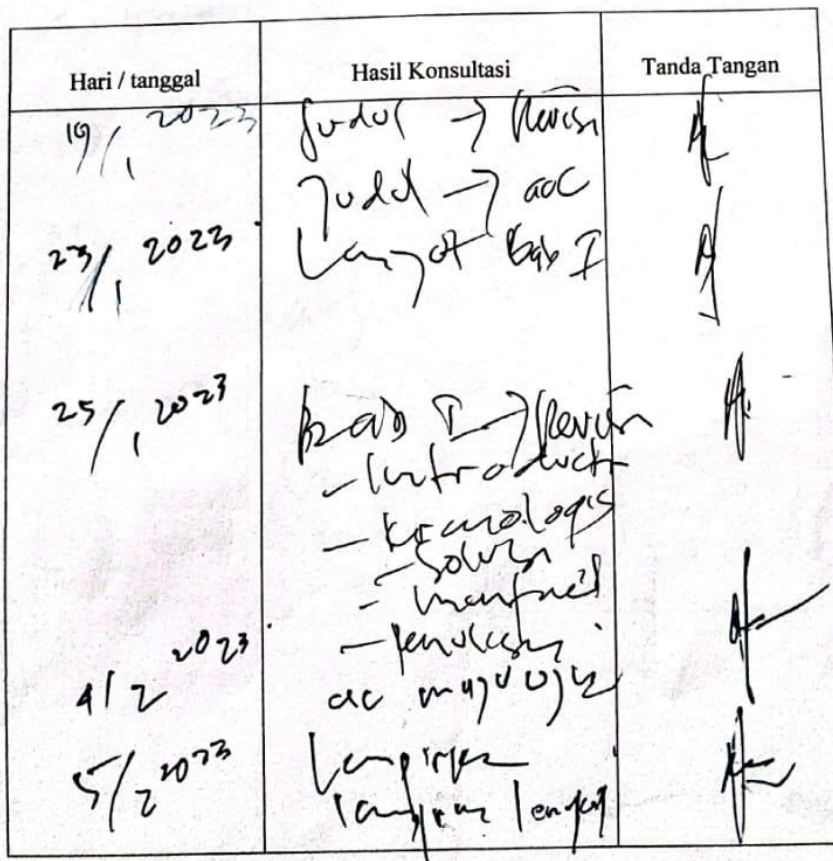 Hari / tanggal Hasil Konsultasi Tanda Tangan
19/1 2023 Judul → Revisi
Judul → acc
23/1 2023 Lanjut Bab I
25/1 2023 Bab I → Revisi
- Introducti
- kronologis
- Solusi
- manfaat
- penulisan
4/2 2023 acc maju ujian
5/2 2023 Lampiran
lengkap